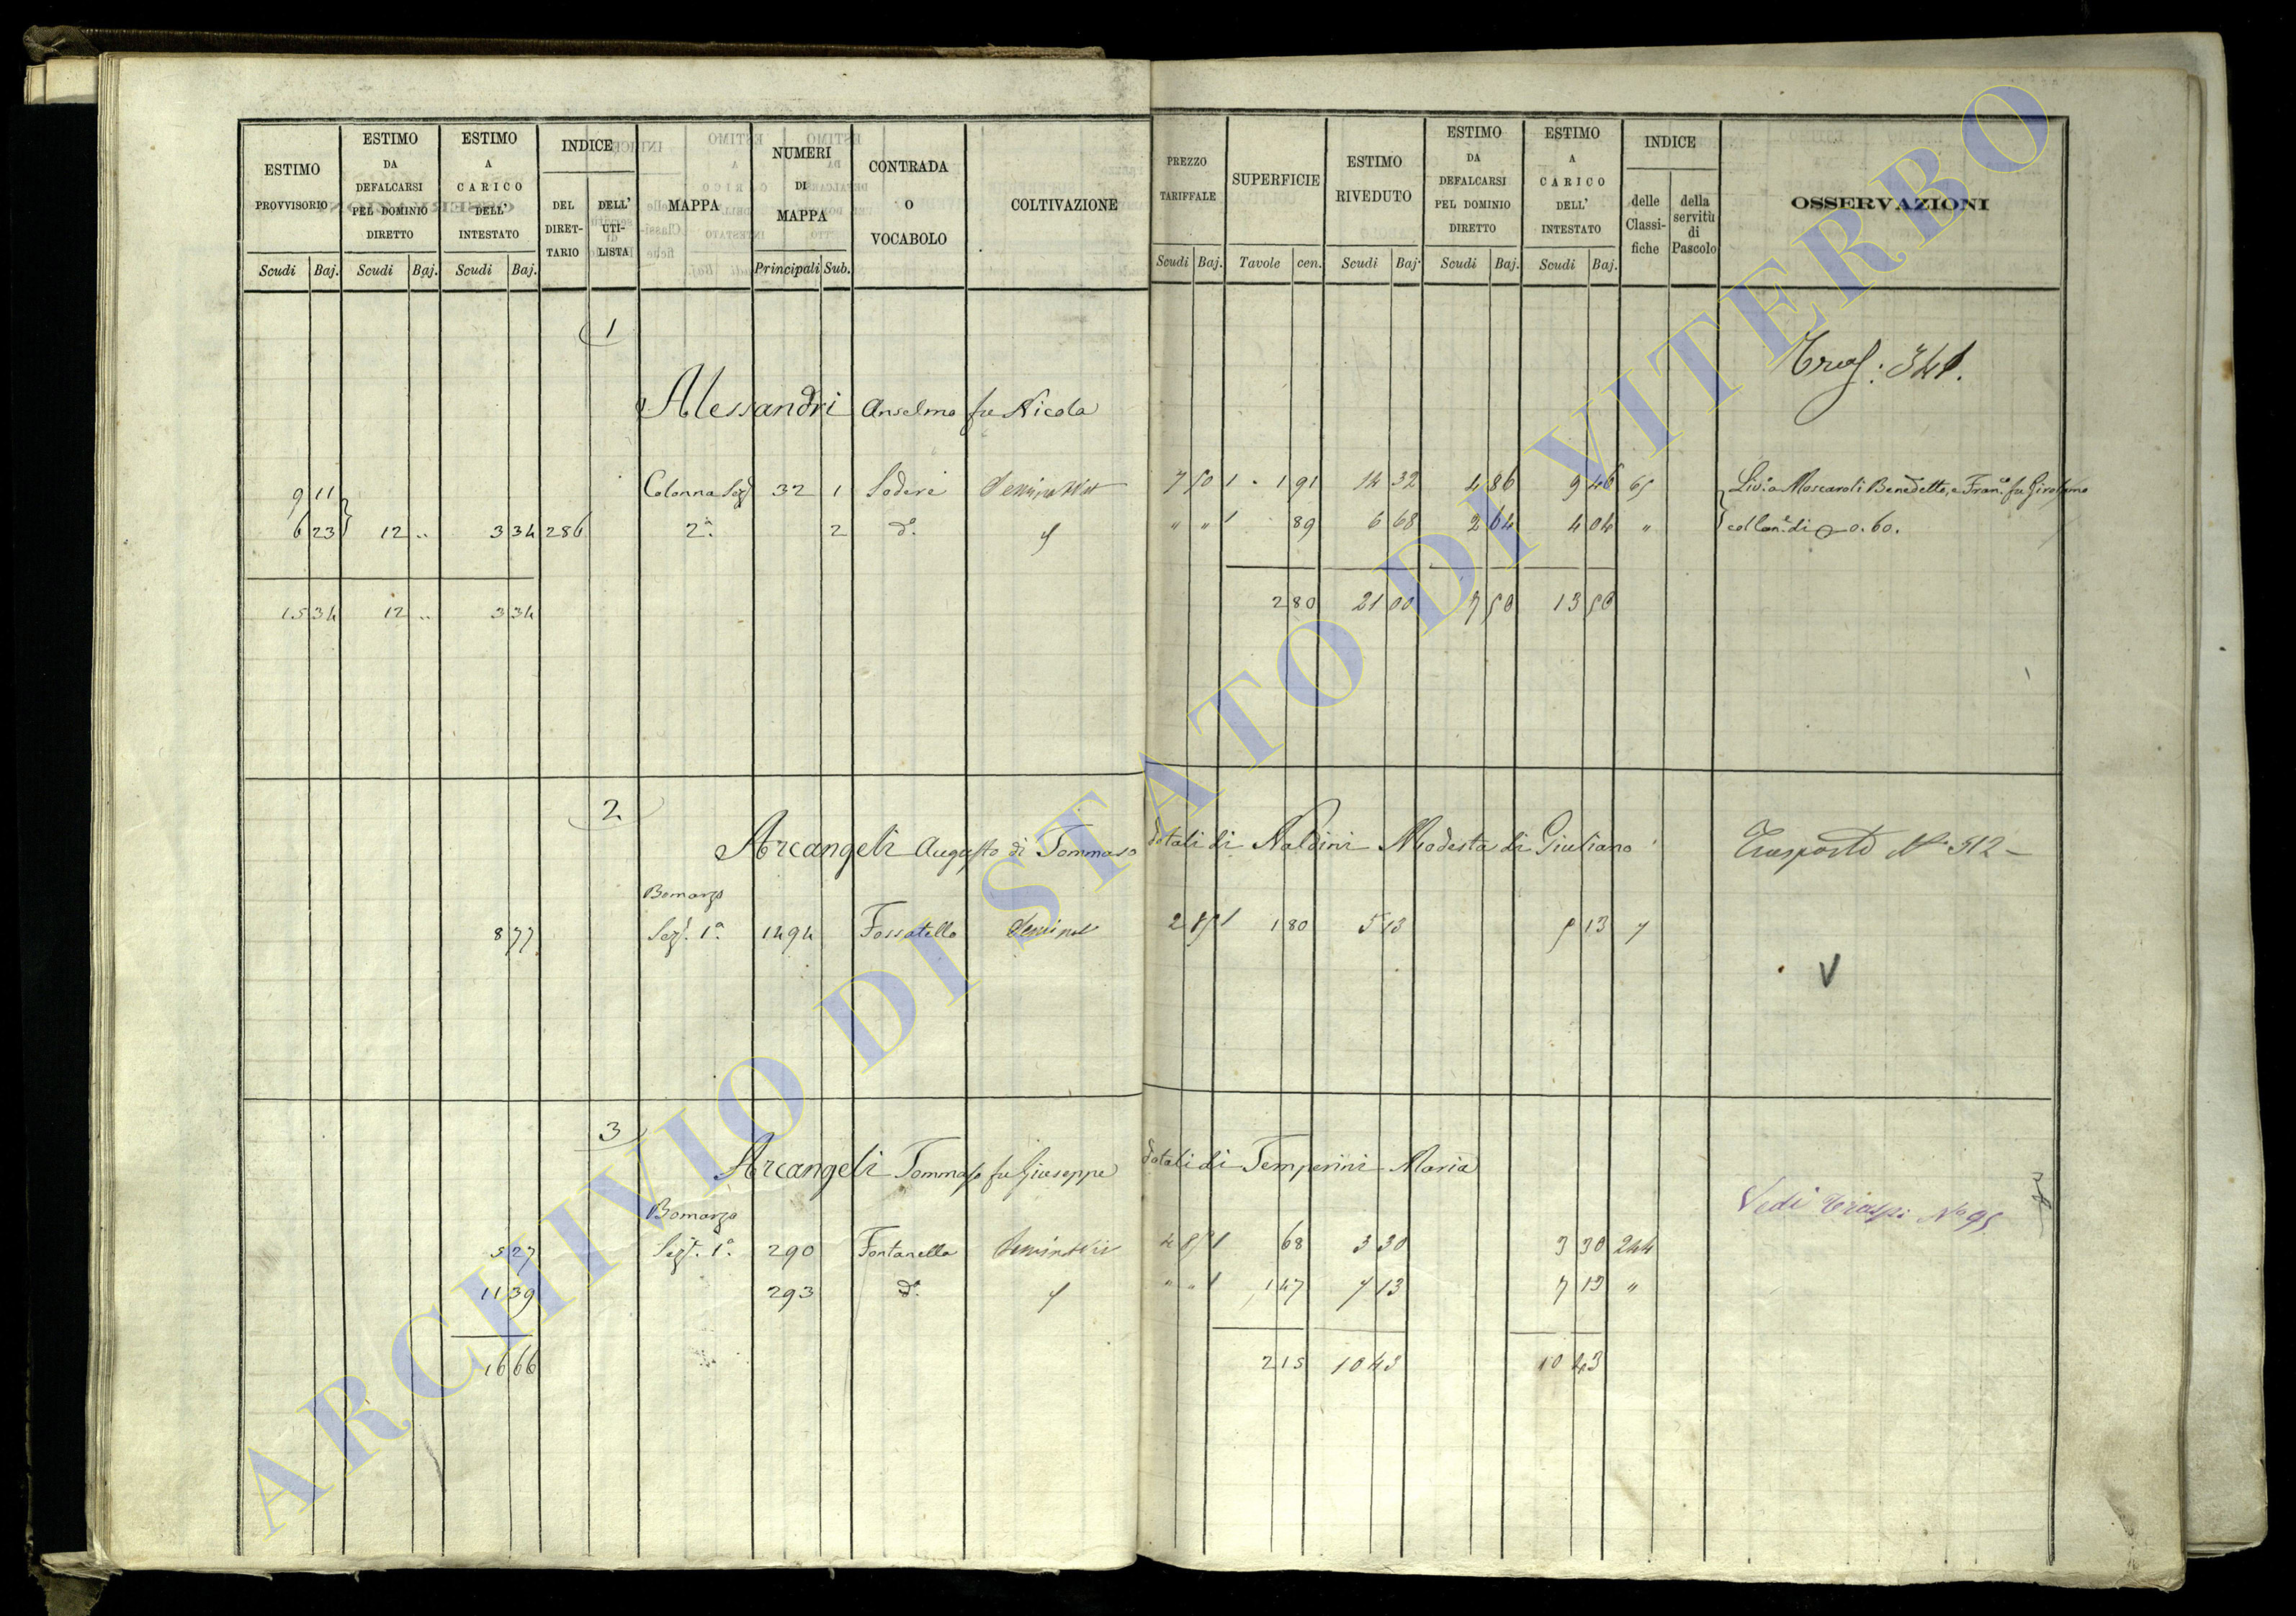 ESTIMO PROVVISORIO Scudi Baj.
ESTIMO DA DEFALCARSI PEL DOMINIO DIRETTO Scudi Baj.
ESTIMO A CARICO DELL' INTESTATO Scudi Baj.
INDICE DEL DIRET-TARIO DELL' UTI-LISTA
MAPPA
NUMERI DI MAPPA Principali Sub.
CONTRADA O VOCABOLO
COLTIVAZIONE
PREZZO TARIFFALE Scudi Baj.
SUPERFICIE Tavole cen.
ESTIMO RIVEDUTO Scudi Baj.
ESTIMO DA DEFALCARSI PEL DOMINIO DIRETTO Scudi Baj.
ESTIMO A CARICO DELL' INTESTATO Scudi Baj.
INDICE delle Classi-fiche della servitù di Pascolo
OSSERVAZIONI
1
Trasp: 341.
Alessandri Anselmo fu Nicola
9 11 Colonna Sez. 32 1 7 50 1 91 14 32 4 86 9 46 65 Liv. a Moscaroli Benedetto, e Fran.co fu Girolamo
6 23 12 .. 3 34 286 2ª 2 dº " " 89 6 68 2 64 4 04 " coll'an. di 0.60.
15 34 12 .. 3 34 2 80 21 00 7 50 13 50
2
Arcangeli Augusto di Tommaso dotali di Naldini Modesta di Giuliano Trasporto Nº 312
Bomarzo
8 77 Sez. 1ª 1494 Fossatello Seminat 2 85 1 80 5 13 5 13 7
V
3
Arcangeli Tommaso fu Giuseppe dotali di Temperini Maria
Vedi Trasp. Nº 95
Bomarzo
5 27 Sez. 1ª 290 Fontanella 4 85 68 3 30 3 30 244
11 39 293 dº " " 1 47 7 13 7 13 "
16 66 2 15 10 43 10 43
ARCHIVIO DI STATO DI VITERBO